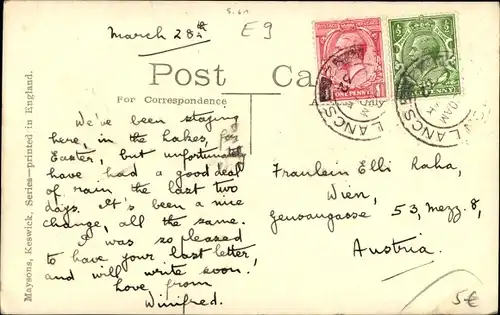 5.61
E9
March 28th
Post Ca
For Correspondence
A Only
We've been staying
here, in the Lakes, for
Easter, but unfortunately
have had a good deal
of rain the last two
days. It's been a nice
change, all the same.
I was so pleased
to have your last letter,
and will write soon.
Love from
Winifred.
Fraulein Elli Raha,
Wien,
53, Mezz. 8,
Austria.
5€
Maysons, Keswick, Series—printed in England.
POSTAGE REVENUE
1 ONE PENNY 1
LANCS
LANCS